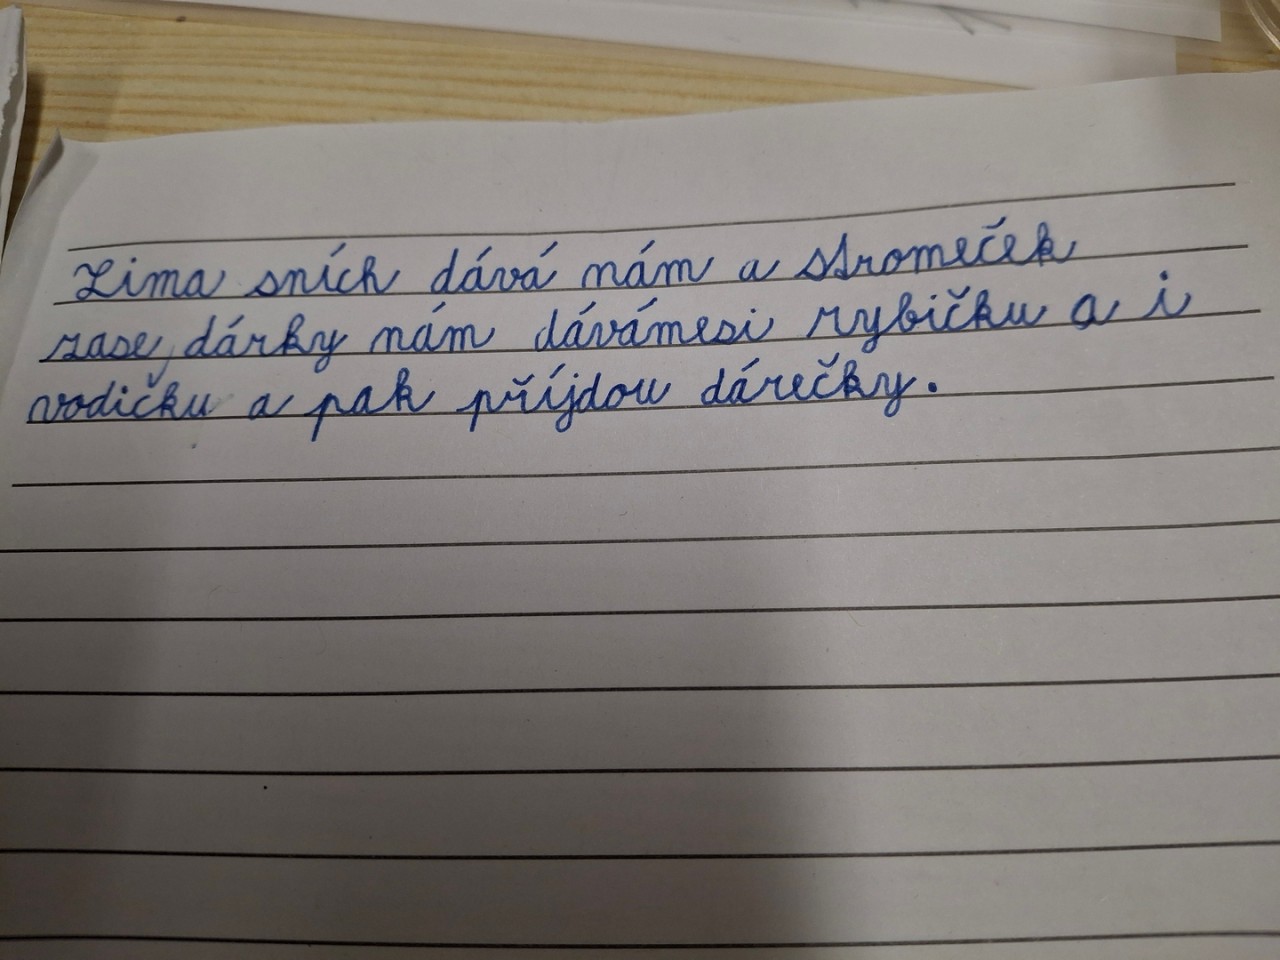 Zima sních dává nám a stromeček
zase, dárky nám dávámesi rybičku a i
vodičku a pak příjdou dárečky.